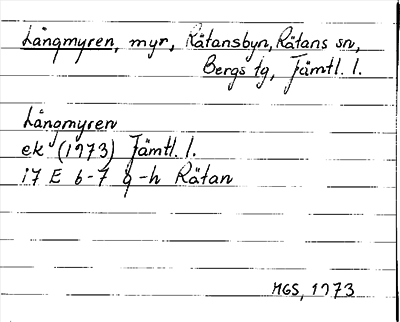 Långmyren, myr, Rätansbyn, Rätans sn,
Bergs tg, Jämtl. l.
Långmyren
ek (1973) Jämtl. l.
17 E 6-7 g-h Rätan
MGS, 1973